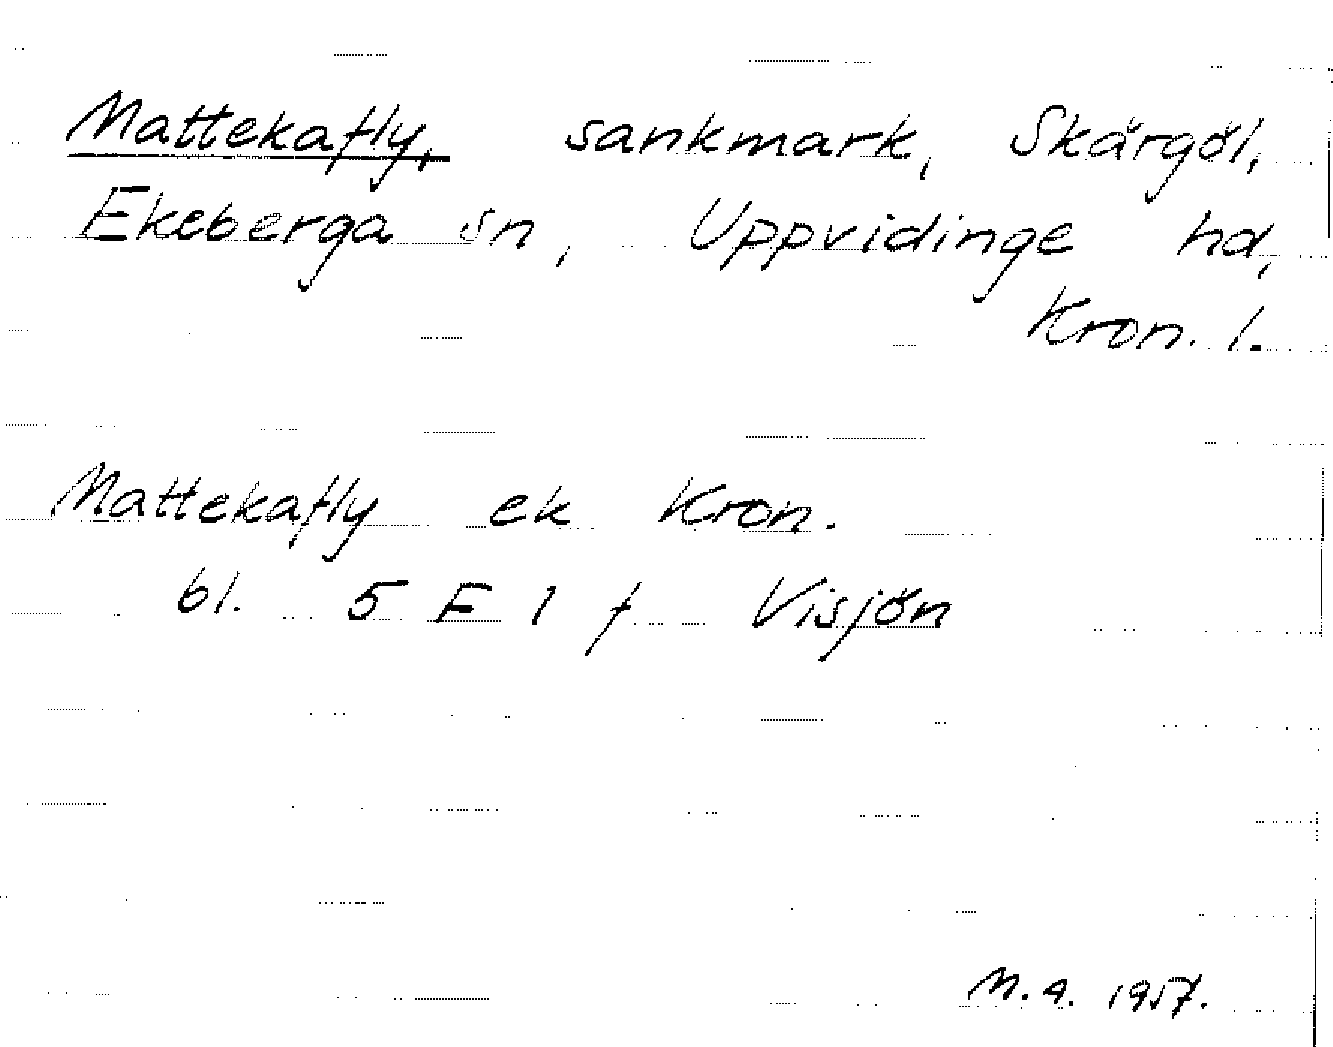 Mattekafly, sankmark, Skärgöl,
Ekeberga sn, Uppvidinge hd,
Kron. l.
Mattekafly ek Kron.
bl. 5 F 1 f Visjön
M.A. 1957.